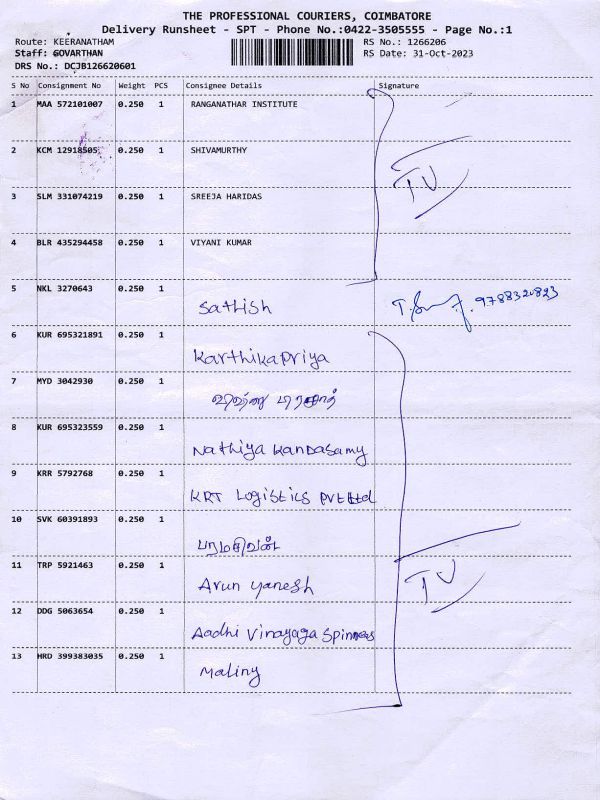 THE PROFESSIONAL COURIERS, COIMBATORE
Delivery Runsheet - SPT - Phone No.:0422-3505555 - Page No.:1
Route: KEERANATHAM RS No.: 1266206
Staff: GOVARTHAN RS Date: 31-Oct-2023
DRS No.: DCJB126620601
S No Consignment No Weight PCS Consignee Details Signature
1 MAA 572101007 0.250 1 RANGANATHAR INSTITUTE
2 KCM 12918505 0.250 1 SHIVAMURTHY
TU
3 SLM 331074219 0.250 1 SREEJA HARIDAS
4 BLR 435294458 0.250 1 VIYANI KUMAR
5 NKL 3270643 0.250 1 Sathish 9788320823
6 KUR 695321891 0.250 1 Karthikapriya
7 MYD 3042930 0.250 1 விஷ்ணு பிரசாத்
8 KUR 695323559 0.250 1 Nathiya Kandasamy
9 KRR 5792768 0.250 1 KRT Logistics Pvt Ltd
10 SVK 60391893 0.250 1 பரமசிவன்
11 TRP 5921463 0.250 1 Arun yanesh
TU
12 DDG 5063654 0.250 1 Aadhi Vinayaga Spinners
13 HRD 399383035 0.250 1 Maliny